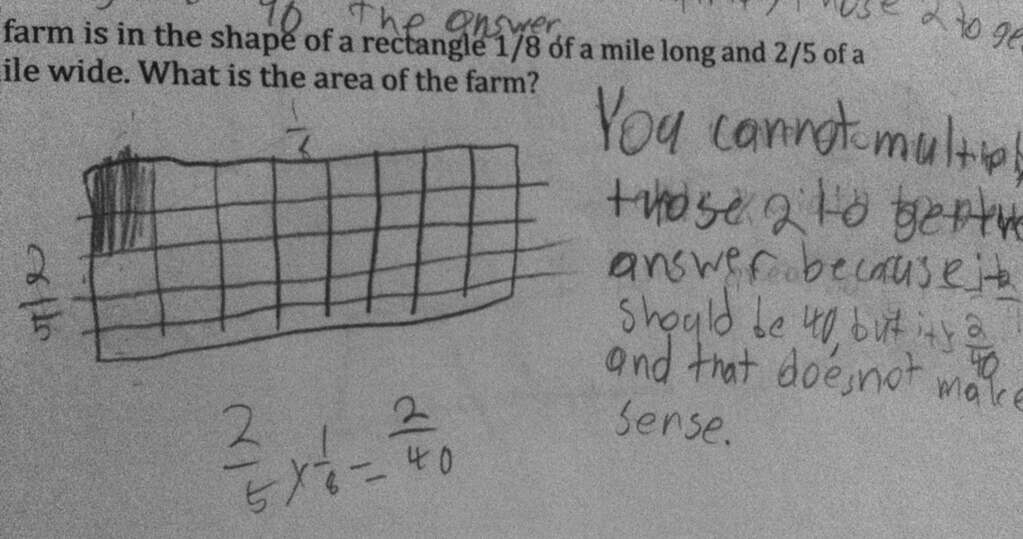 40 the answer.
those 2 to ge
farm is in the shape of a rectangle 1/8 of a mile long and 2/5 of a
ile wide. What is the area of the farm?
1
2
5
You cannot multipl
those 2 to get the
answer because it
should be 40, but its 2/40
and that does not make
sense.
2/5 x 1/8 = 2/40